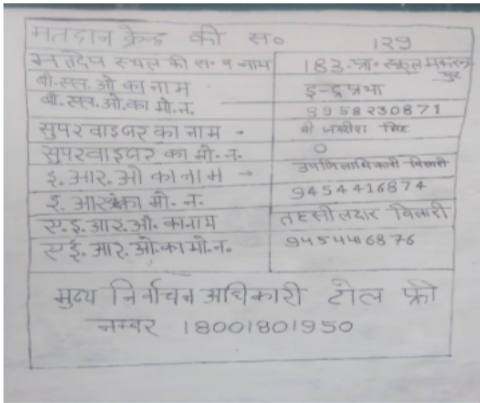 मतदान केन्द्र की स० 129
मतदेय स्थल की स. व नाम 183. प्रा. स्कूल
बी.एल.ओ का नाम इन्द्रप्रभा
बी.एल.ओ.का मो.न. 9958230871
सुपरवाइजर का नाम - श्री जगदीश सिंह
सुपरवाइजर का मो.न. 0
ई.आर.ओ का नाम → उपजिलाधिकारी बिलारी
ई.आर.ओ का मो.न. 9454416874
ए.ई.आर.ओ. का नाम तहसीलदार बिलारी
ए.ई.आर.ओ.का मो.न. 9454416876
मुख्य निर्वाचन अधिकारी टोल फ्री
नम्बर 18001801950